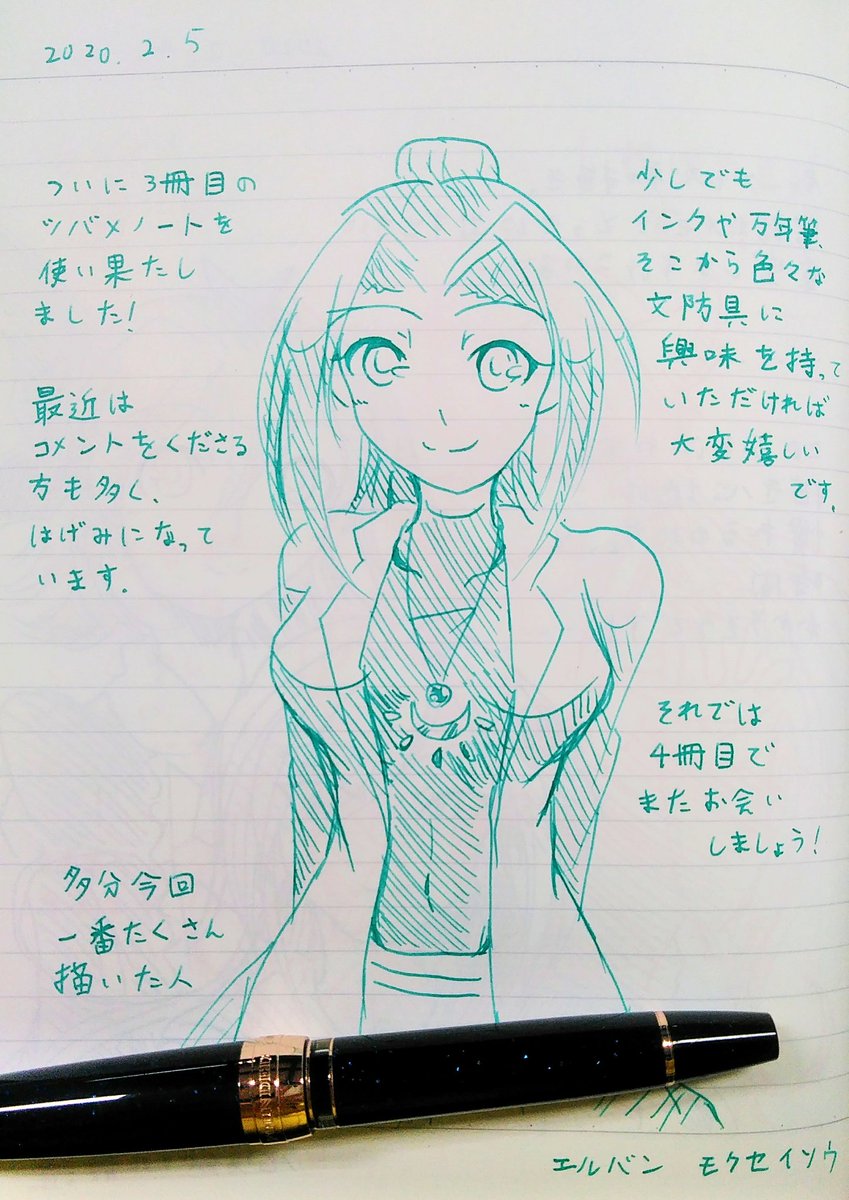 2020.2.5
ついに3冊目の
ツバメノートを
使い果たし
ました!
最近は
コメントをくださる
方も多く、
はげみになって
います.
少しでも
インクや万年筆、
そこから色々な
文防具に
興味を持って
いただければ
大変嬉しい
です.
それでは
4冊目で
またお会い
しましょう!
多分今回
一番たくさん
描いた人
エルバン モクセイソウ